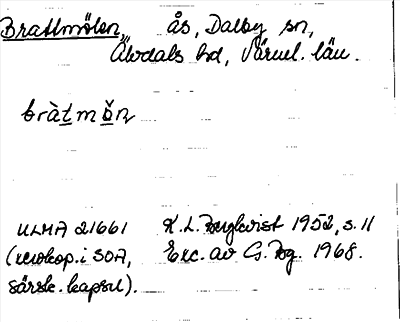 Brattmölen, ås, Dalby sn,
Älvdals hd, Värml. län.
bràtmö̀n
ULMA 21661 K. L. Bergkvist 1952, s. 11
(xerokop. i SOA, Exc. av G. Bg. 1968.
särsk. kapsel).